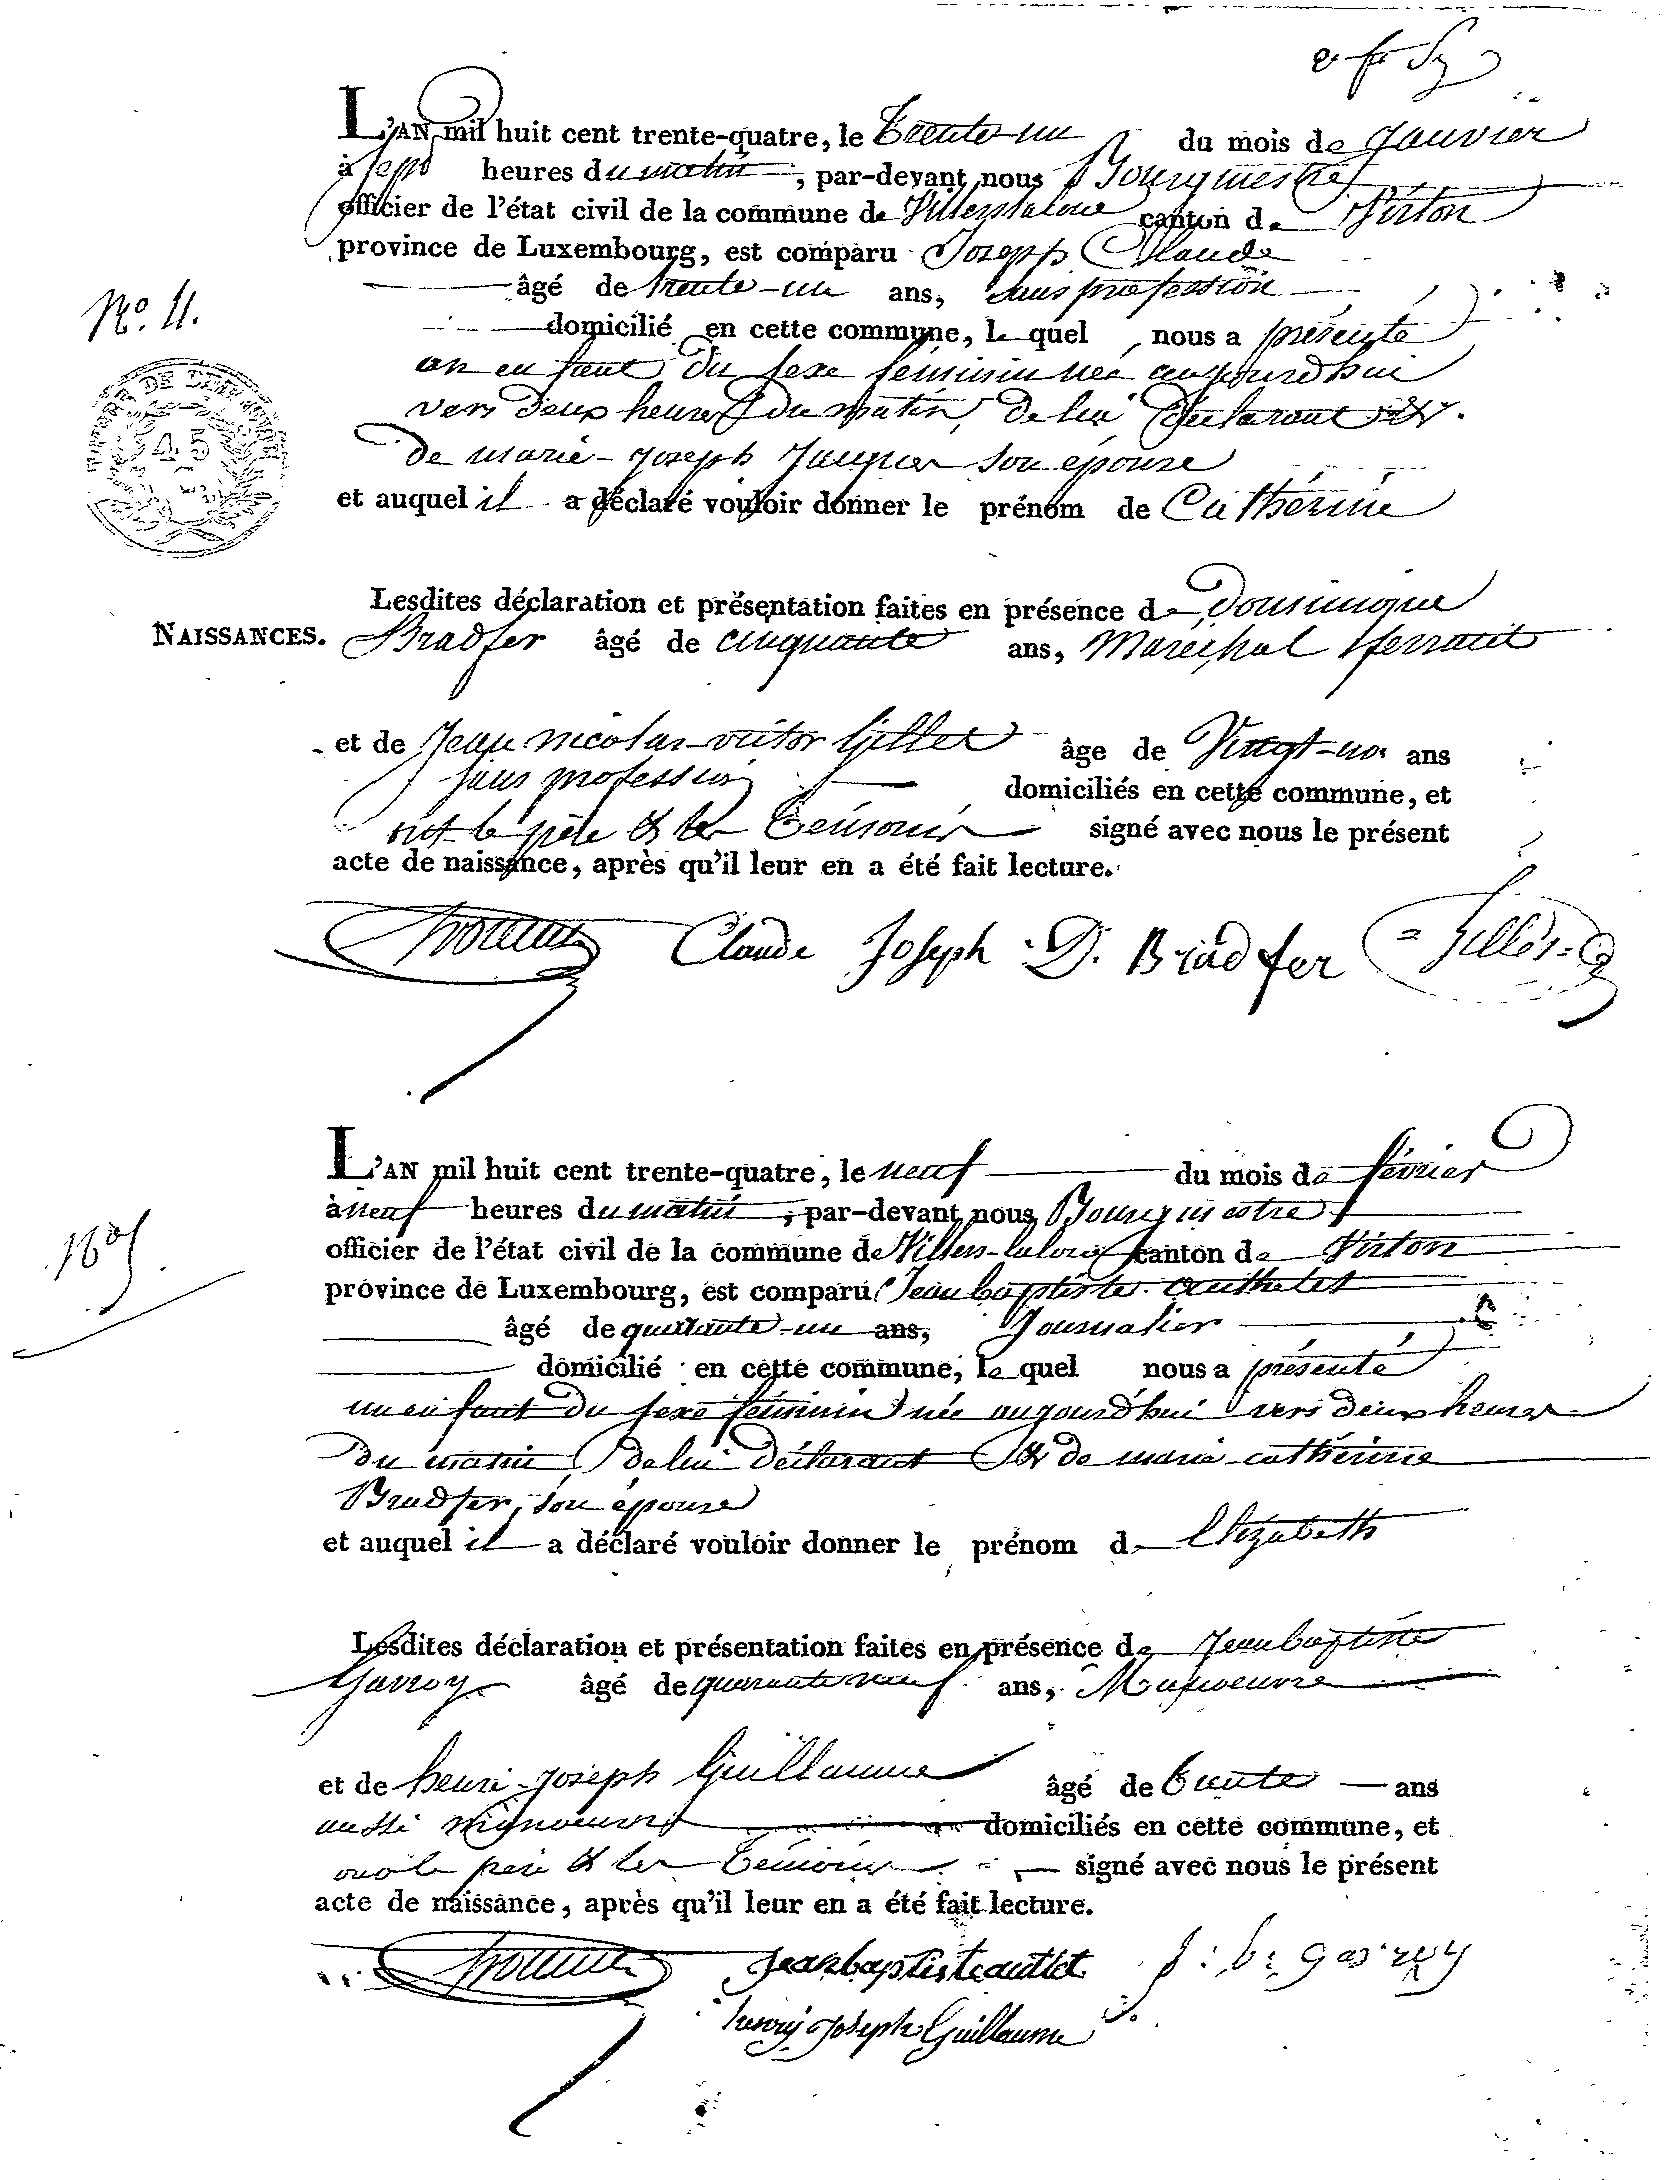 L'AN mil huit cent trente-quatre, le trente-un du mois de janvier
à sept heures du matin, par-devant nous Bourgmestre
officier de l'état civil de la commune de Villerslaloue canton de Virton
province de Luxembourg, est comparu Joseph Claude
âgé de trente-un ans, sans profession
N.º 4.
domicilié en cette commune, le quel nous a présenté
un enfant du sexe féminin née aujourd'hui
vers deux heures du matin, de lui déclarant &
de marie-joseph son épouse
et auquel il a déclaré vouloir donner le prénom de Cathérine
45
Lesdites déclaration et présentation faites en présence de Dominique
NAISSANCES. Bradfer âgé de cinquante ans, Maréchal ferrant
et de Jean nicolas-victor Gillet âge de Vingt- ans
sans profession domiciliés en cette commune, et
ont le père & les témoins signé avec nous le présent
acte de naissance, après qu'il leur en a été fait lecture.
Claude Joseph D. Bradfer
L'AN mil huit cent trente-quatre, le neuf du mois de février
à neuf heures du matin, par-devant nous Bourgmestre
officier de l'état civil de la commune de Villers-laloue canton de Virton
province de Luxembourg, est comparu Jean baptiste authelet
âgé de quarante-un ans, Journalier
Nº 5.
domicilié en cette commune, le quel nous a présenté
un enfant du sexe féminin née aujourd'hui vers deux heures
du matin, de lui déclarant & de marie-cathérine
Bradfer, son épouse
et auquel il a déclaré vouloir donner le prénom d' Elizabeth
Lesdites déclaration et présentation faites en présence de Jean baptiste
Garroy âgé de quarante neuf ans, Manoeuvre
et de henri-joseph Guillaume âgé de trente ans
aussi manoeuvre domiciliés en cette commune, et
ont le père & les témoins signé avec nous le présent
acte de naissance, après qu'il leur en a été fait lecture.
jean baptiste autlet j: b: garroy
henry joseph Guillaume